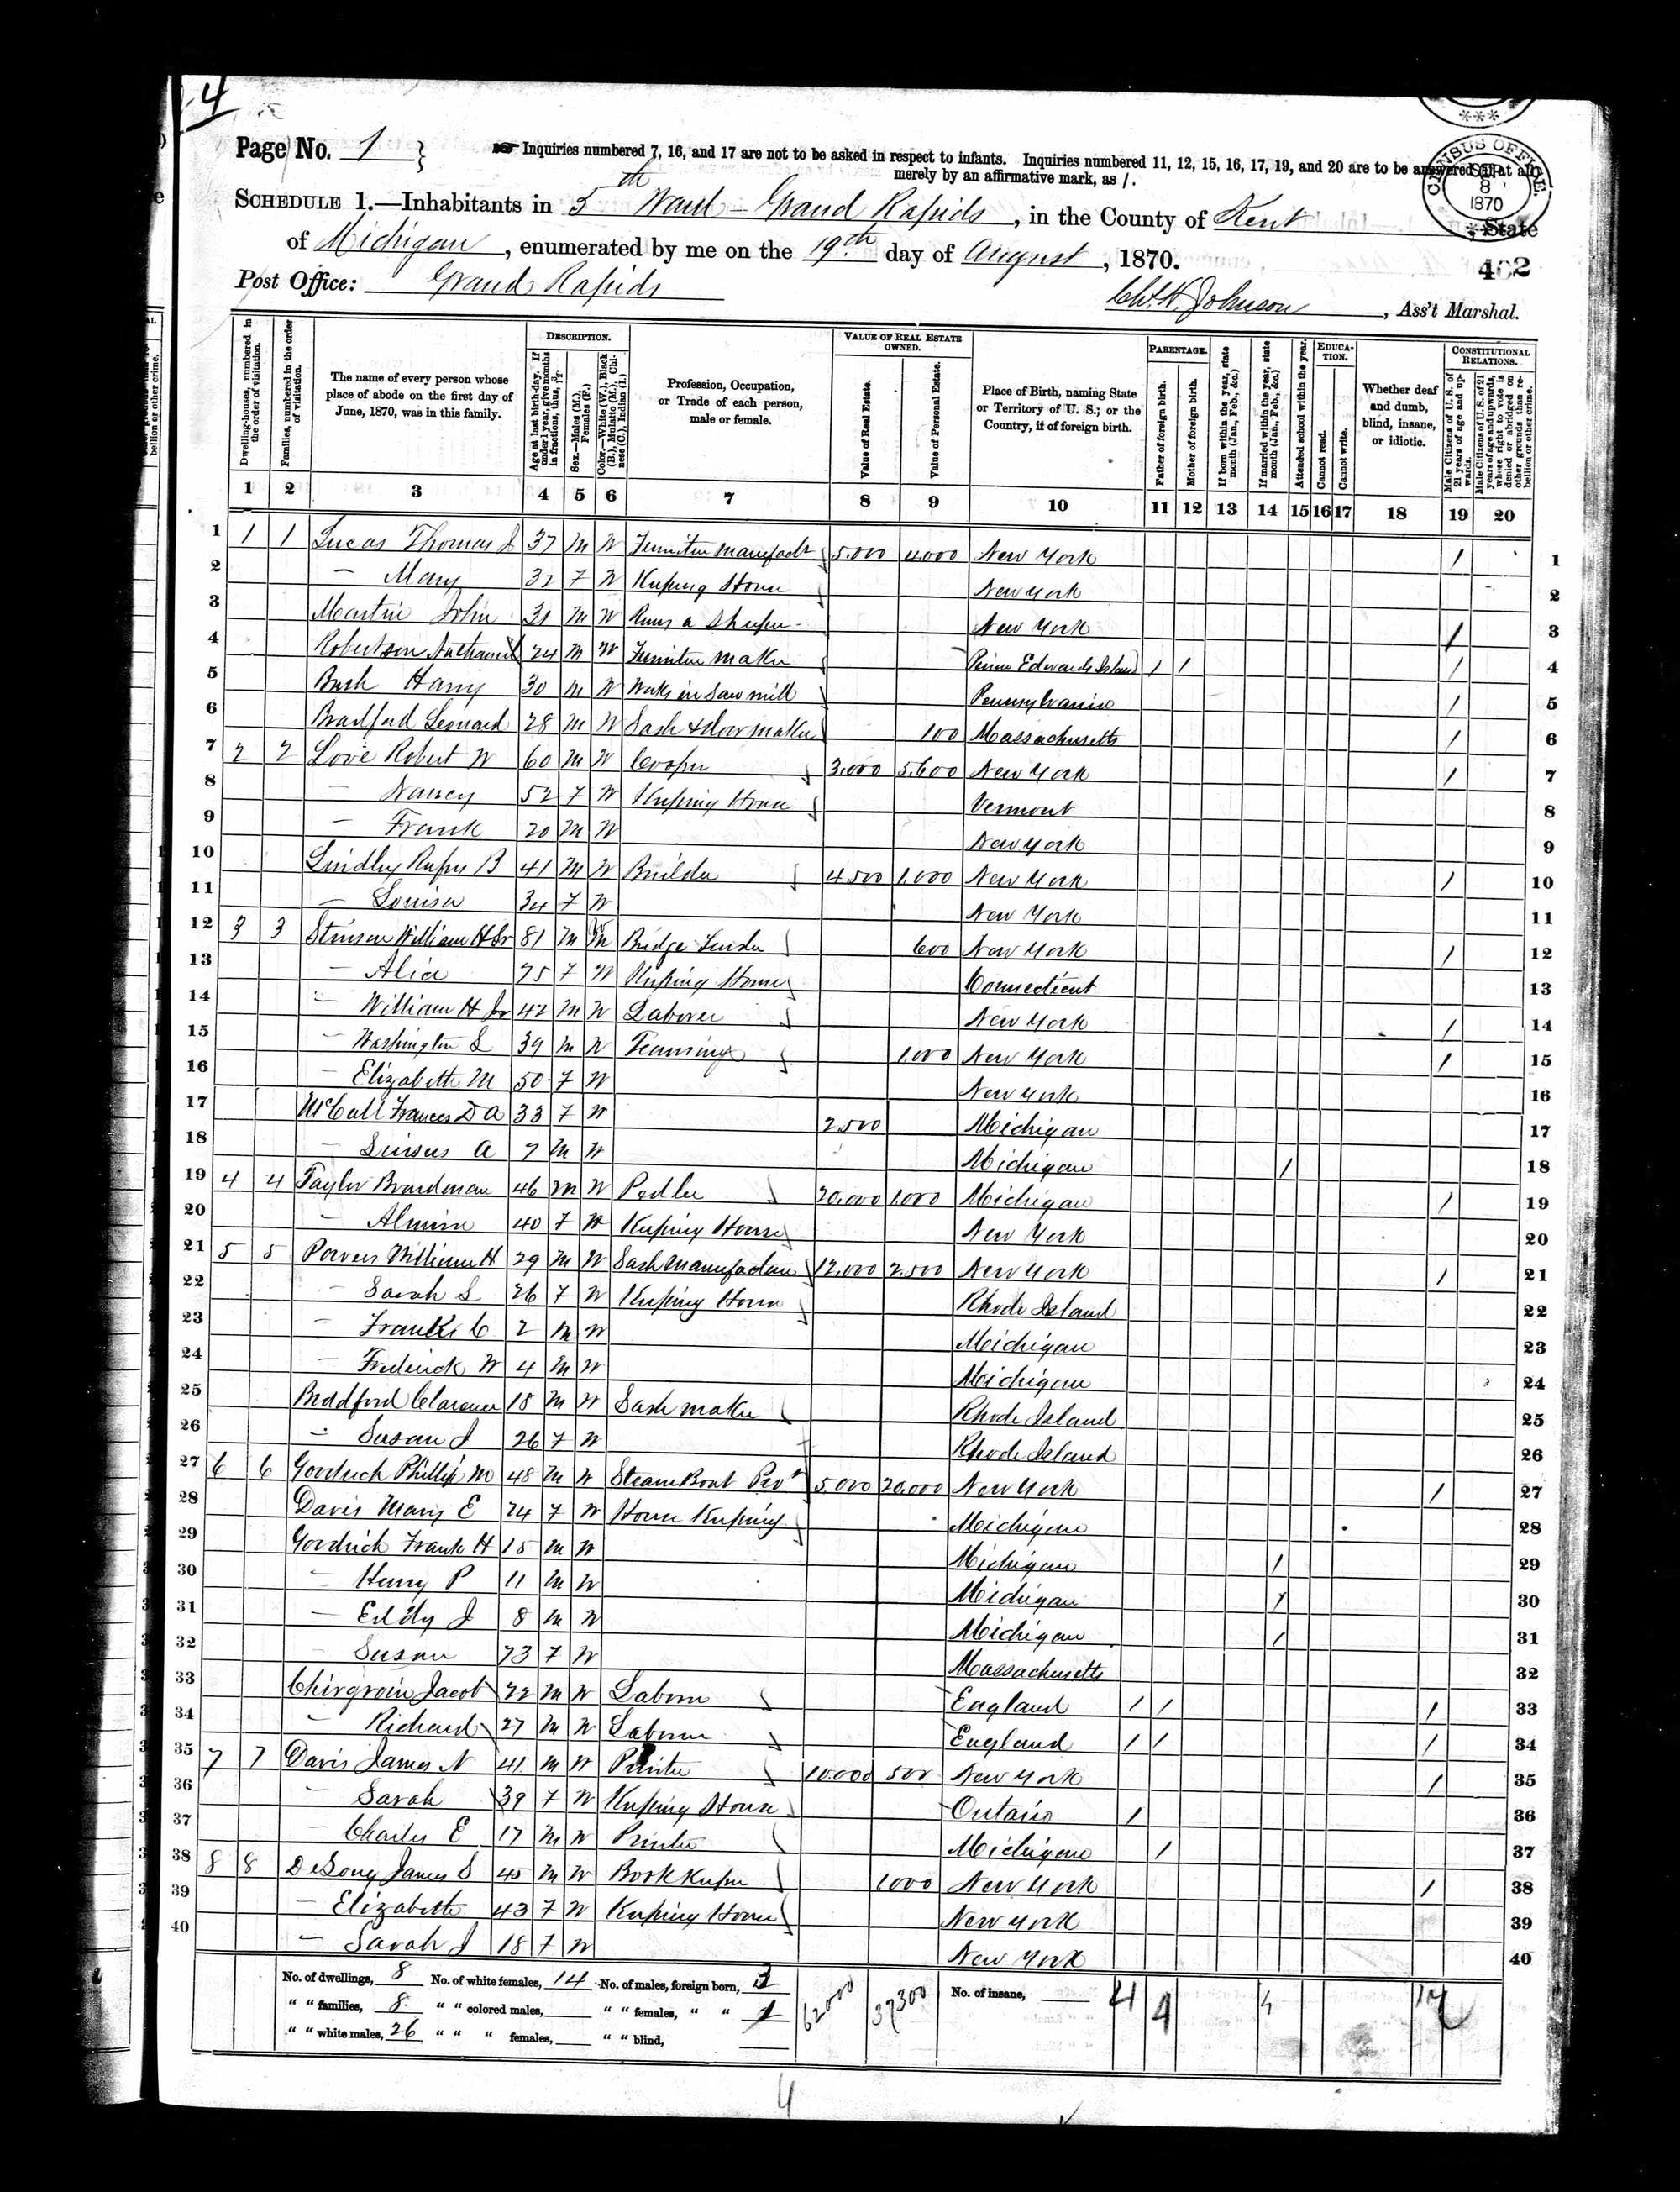 4
Page No. 1
Inquiries numbered 7, 16, and 17 are not to be asked in respect to infants. Inquiries numbered 11, 12, 15, 16, 17, 19, and 20 are to be answered (if at all)
merely by an affirmative mark, as /.
CENSUS OFFICE SEP 8 1870
SCHEDULE 1.—Inhabitants in 5th Ward - Grand Rapids, in the County of Kent, State
of Michigan, enumerated by me on the 19th day of August, 1870.
402
Post Office: Grand Rapids
Johnson, Ass't Marshal.
Dwelling-houses, numbered in the order of visitation.
Families, numbered in the order of visitation.
The name of every person whose place of abode on the first day of June, 1870, was in this family.
DESCRIPTION.
Age at last birth-day. If under 1 year, give months in fractions, thus, 3/12.
Sex.—Males (M.), Females (F.)
Color.—White (W.), Black (B.), Mulatto (M.), Chinese (C.), Indian (I.)
Profession, Occupation, or Trade of each person, male or female.
VALUE OF REAL ESTATE OWNED.
Value of Real Estate.
Value of Personal Estate.
Place of Birth, naming State or Territory of U. S.; or the Country, if of foreign birth.
PARENTAGE.
Father of foreign birth.
Mother of foreign birth.
If born within the year, state month (Jan., Feb., &c.)
If married within the year, state month (Jan., Feb., &c.)
Attended school within the year.
EDUCATION.
Cannot read.
Cannot write.
Whether deaf and dumb, blind, insane, or idiotic.
CONSTITUTIONAL RELATIONS.
Male Citizens of U. S. of 21 years of age and upwards.
Male Citizens of U. S. of 21 years of age and upwards, where right to vote is denied or abridged on other grounds than rebellion or other crime.
1 2 3 4 5 6 7 8 9 10 11 12 13 14 15 16 17 18 19 20
1 1 1 Lucas Thomas J 37 M W Furniture manufactr 5,000 4,000 New York / 1
2 — Mary 32 F W Keeping House New York 2
3 Martin John 31 M W Runs a New York / 3
4 Robertson Nathaniel 24 M W Furniture maker Prince Edwards Island / / / 4
5 Bush Harry 30 M W Works in Saw mill Pennsylvania / 5
6 Bradford Leonard 28 M W Sash & door maker 100 Massachusetts / 6
7 2 2 Love Robert W 60 M W Cooper 3,000 5,600 New York / 7
8 — Nancy 52 F W Keeping House Vermont 8
9 — Frank 20 M W New York 9
10 Lindley Rufus B 41 M W Builder 4,500 1,000 New York / 10
11 — Louisa 34 F W New York 11
12 3 3 Stinson William H Sr 81 M W Bridge Tender 600 New York / 12
13 — Alice 75 F W Keeping House Connecticut 13
14 — William H Jr 42 M W Laborer New York / 14
15 — Washington S 39 M W Teaming 1,000 New York / 15
16 — Elizabeth M 50 F W New York 16
17 McCall Frances D A 33 F W 2,500 Michigan 17
18 — A 7 M W Michigan / 18
19 4 4 Taylor Boardman 46 M W Pedler 20,000 1,000 Michigan / 19
20 — Almira 40 F W Keeping House New York 20
21 5 5 Powers William H 29 M W Sash manufacture 12,000 2,500 New York / 21
22 — Sarah S 26 F W Keeping House Rhode Island 22
23 — Frank C 2 M W Michigan 23
24 — Frederick W 4 M W Michigan 24
25 Bradford Clarence 18 M W Sash maker Rhode Island 25
26 — Susan J 26 F W Rhode Island 26
27 6 6 Goodrich Phillip M 48 M W Steam Boat Pro 5,000 20,000 New York / 27
28 Davis Mary E 24 F W House Keeping Michigan 28
29 Goodrich Frank H 15 M W Michigan / 29
30 — Henry P 11 M W Michigan / 30
31 — Eddy J 8 M W Michigan / 31
32 — Susan 73 F W Massachusetts 32
33 Jacob 22 M W Laborer England / / / 33
34 — Richard 27 M W Laborer England / / / 34
35 7 7 Davis James N 41 M W Printer 10,000 500 New York / 35
36 — Sarah 39 F W Keeping House Ontario / 36
37 — Charles E 17 M W Printer Michigan / 37
38 8 8 DeLong James S 45 M W Book Keeper 1000 New York / 38
39 — Elizabeth 43 F W Keeping House New York 39
40 — Sarah J 18 F W New York 40
No. of dwellings, 8 No. of white females, 14 No. of males, foreign born, 3 62000 37300 No. of insane, 4 4 4 17
" " families, 8 " " colored males, " " females, " " 1
" " white males, 26 " " " females, " " blind,
4